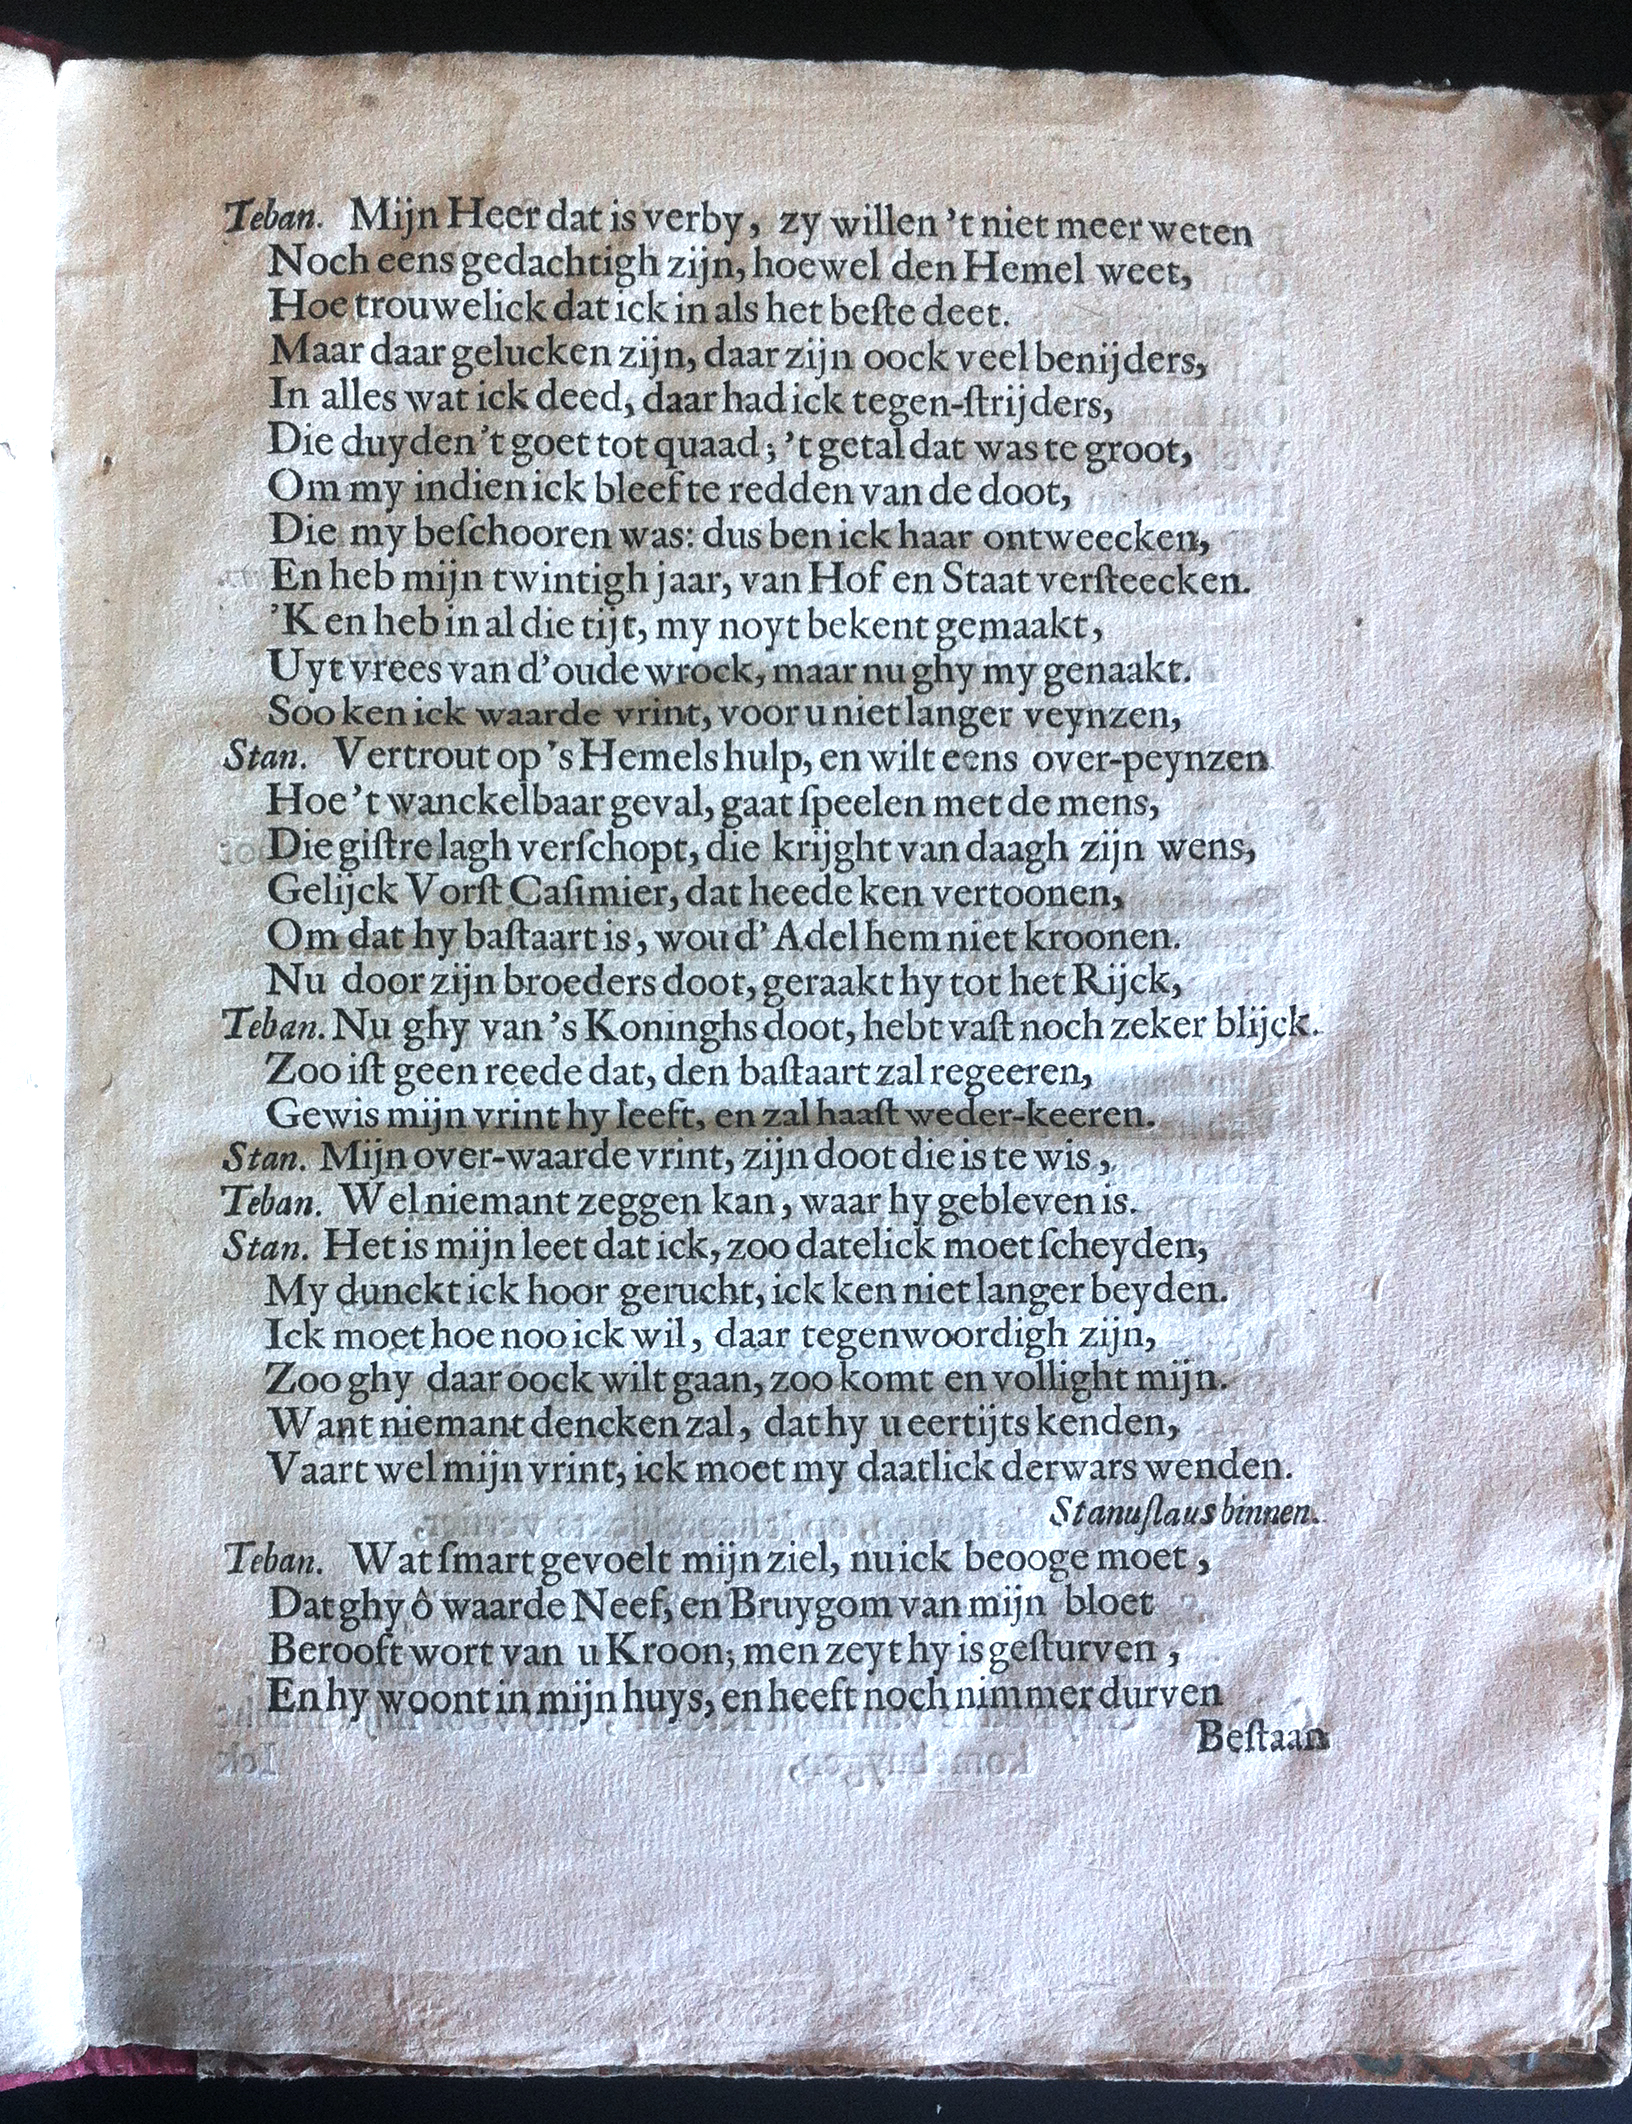 Teban. Mijn Heer dat is verby, zy willen 't niet meer weten
Noch eens gedachtigh zijn, hoewel den Hemel weet,
Hoe trouwelick dat ick in als het beſte deet.
Maar daar gelucken zijn, daar zijn oock veel benijders,
In alles wat ick deed, daar had ick tegen-ſtrijders,
Die duyden 't goet tot quaad; 't getal dat was te groot,
Om my indien ick bleef te redden van de doot,
Die my beſchooren was: dus ben ick haar ontweecken,
En heb mijn twintigh jaar, van Hof en Staat verſteecken.
'K en heb in al die tijt, my noyt bekent gemaakt,
Uyt vrees van d'oude wrock, maar nu ghy my genaakt.
Soo ken ick waarde vrint, voor u niet langer veynzen,
Stan. Vertrout op 's Hemels hulp, en wilt eens over-peynzen
Hoe 't wanckelbaar geval, gaat ſpeelen met de mens,
Die giſtre lagh verſchopt, die krijght van daagh zijn wens,
Gelijck Vorſt Caſimier, dat heede ken vertoonen,
Om dat hy baſtaart is, wou d'Adel hem niet kroonen.
Nu door zijn broeders doot, geraakt hy tot het Rijck,
Teban. Nu ghy van 's Koninghs doot, hebt vaſt noch zeker blijck.
Zoo iſt geen reede dat, den baſtaart zal regeeren,
Gewis mijn vrint hy leeft, en zal haaſt weder-keeren.
Stan. Mijn over-waarde vrint, zijn doot die is te wis,
Teban. Wel niemant zeggen kan, waar hy gebleven is.
Stan. Het is mijn leet dat ick, zoo datelick moet ſcheyden,
My dunckt ick hoor gerucht, ick ken niet langer beyden.
Ick moet hoe noo ick wil, daar tegenwoordigh zijn,
Zoo ghy daar oock wilt gaan, zoo komt en vollight mijn.
Want niemant dencken zal, dat hy u eertijts kenden,
Vaart wel mijn vrint, ick moet my daatlick derwars wenden.
Stanuſlaus binnen.
Teban. Wat ſmart gevoelt mijn ziel, nu ick beooge moet,
Dat ghy ô waarde Neef, en Bruygom van mijn bloet
Berooft wort van u Kroon; men zeyt hy is geſturven,
En hy woont in mijn huys, en heeft noch nimmer durven
Beſtaan